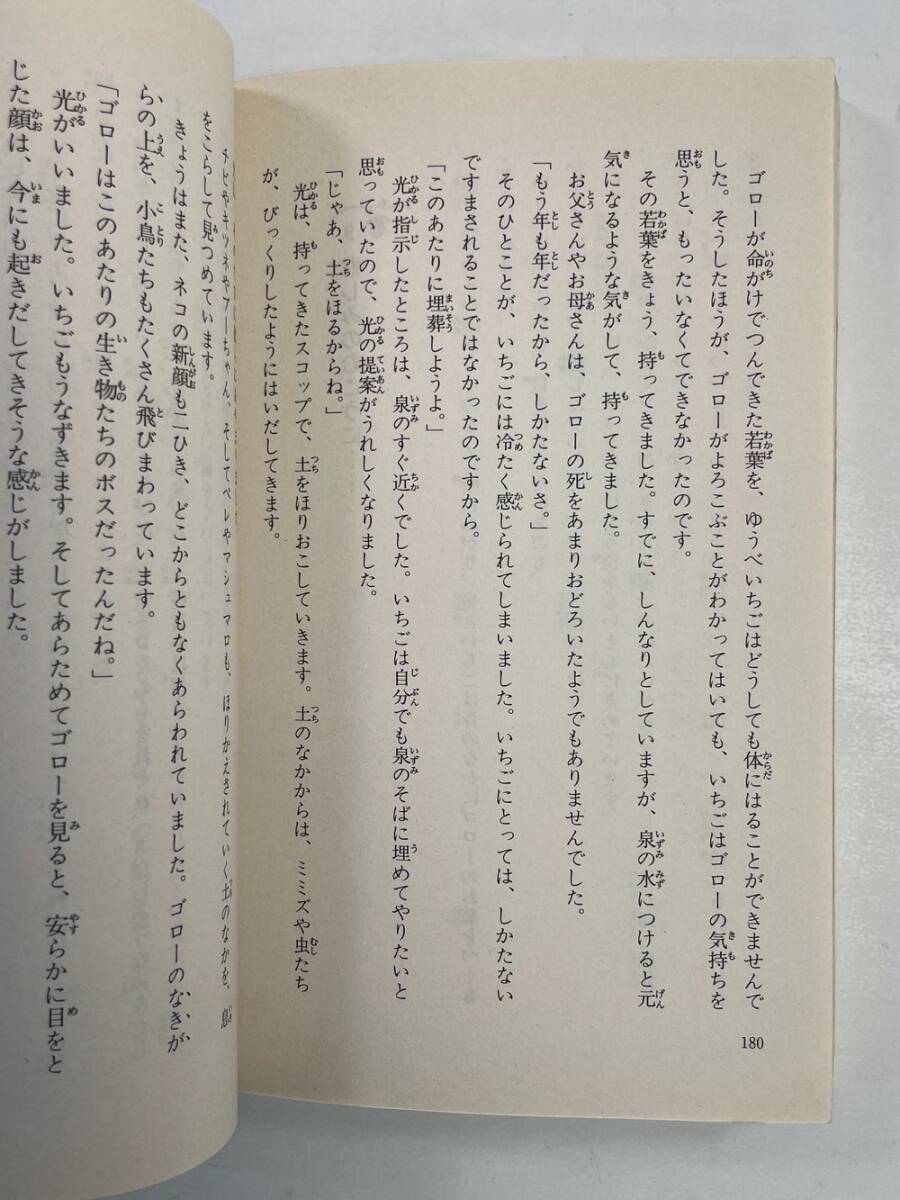 ゴローが命がけでつんできた若葉を、ゆうべいちごはどうしても体にはることができませんで
した。そうしたほうが、ゴローがよろこぶことがわかってはいても、いちごはゴローの気持ちを
思うと、もったいなくてできなかったのです。
その若葉をきょう、持ってきました。すでに、しんなりとしていますが、泉の水につけると元
気になるような気がして、持ってきました。
お父さんやお母さんは、ゴローの死をあまりおどろいたようでもありませんでした。
「もう年も年だったから、しかたないさ。」
そのひとことが、いちごには冷たく感じられてしまいました。いちごにとっては、しかたない
ですまされることではなかったのですから。
「このあたりに埋葬しようよ。」
光が指示したところは、泉のすぐ近くでした。いちごは自分でも泉のそばに埋めてやりたいと
思っていたので、光の提案がうれしくなりました。
「じゃあ、土をほるからね。」
光は、持ってきたスコップで、土をほりおこしていきます。土のなかからは、ミミズや虫たち
が、びっくりしたようにはいだしてきます。
180
チビやキツネやアーちゃん、そしてペレやマシュマロも、ほりかえされていく土のなかを、息
をこらして見つめています。
きょうはまた、ネコの新顔も二ひき、どこからともなくあらわれていました。ゴローのなきが
らの上を、小鳥たちもたくさん飛びまわっています。
「ゴローはこのあたりの生き物たちのボスだったんだね。」
光がいいました。いちごもうなずきます。そしてあらためてゴローを見ると、安らかに目をと
じた顔は、今にも起きだしてきそうな感じがしました。